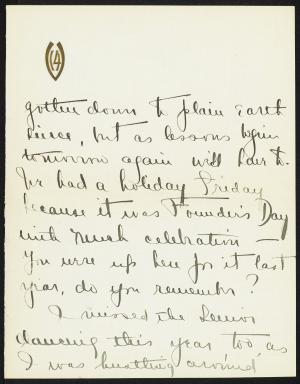 gotten down to plain earth
since, but as lessons begin
tomorrow again will have to.
We had a holiday Friday
because it was Founder's Day
with much celebration —
you were up here for it last
year, do you remember?
I missed the Senior
dancing this year too, as
I was hustling around